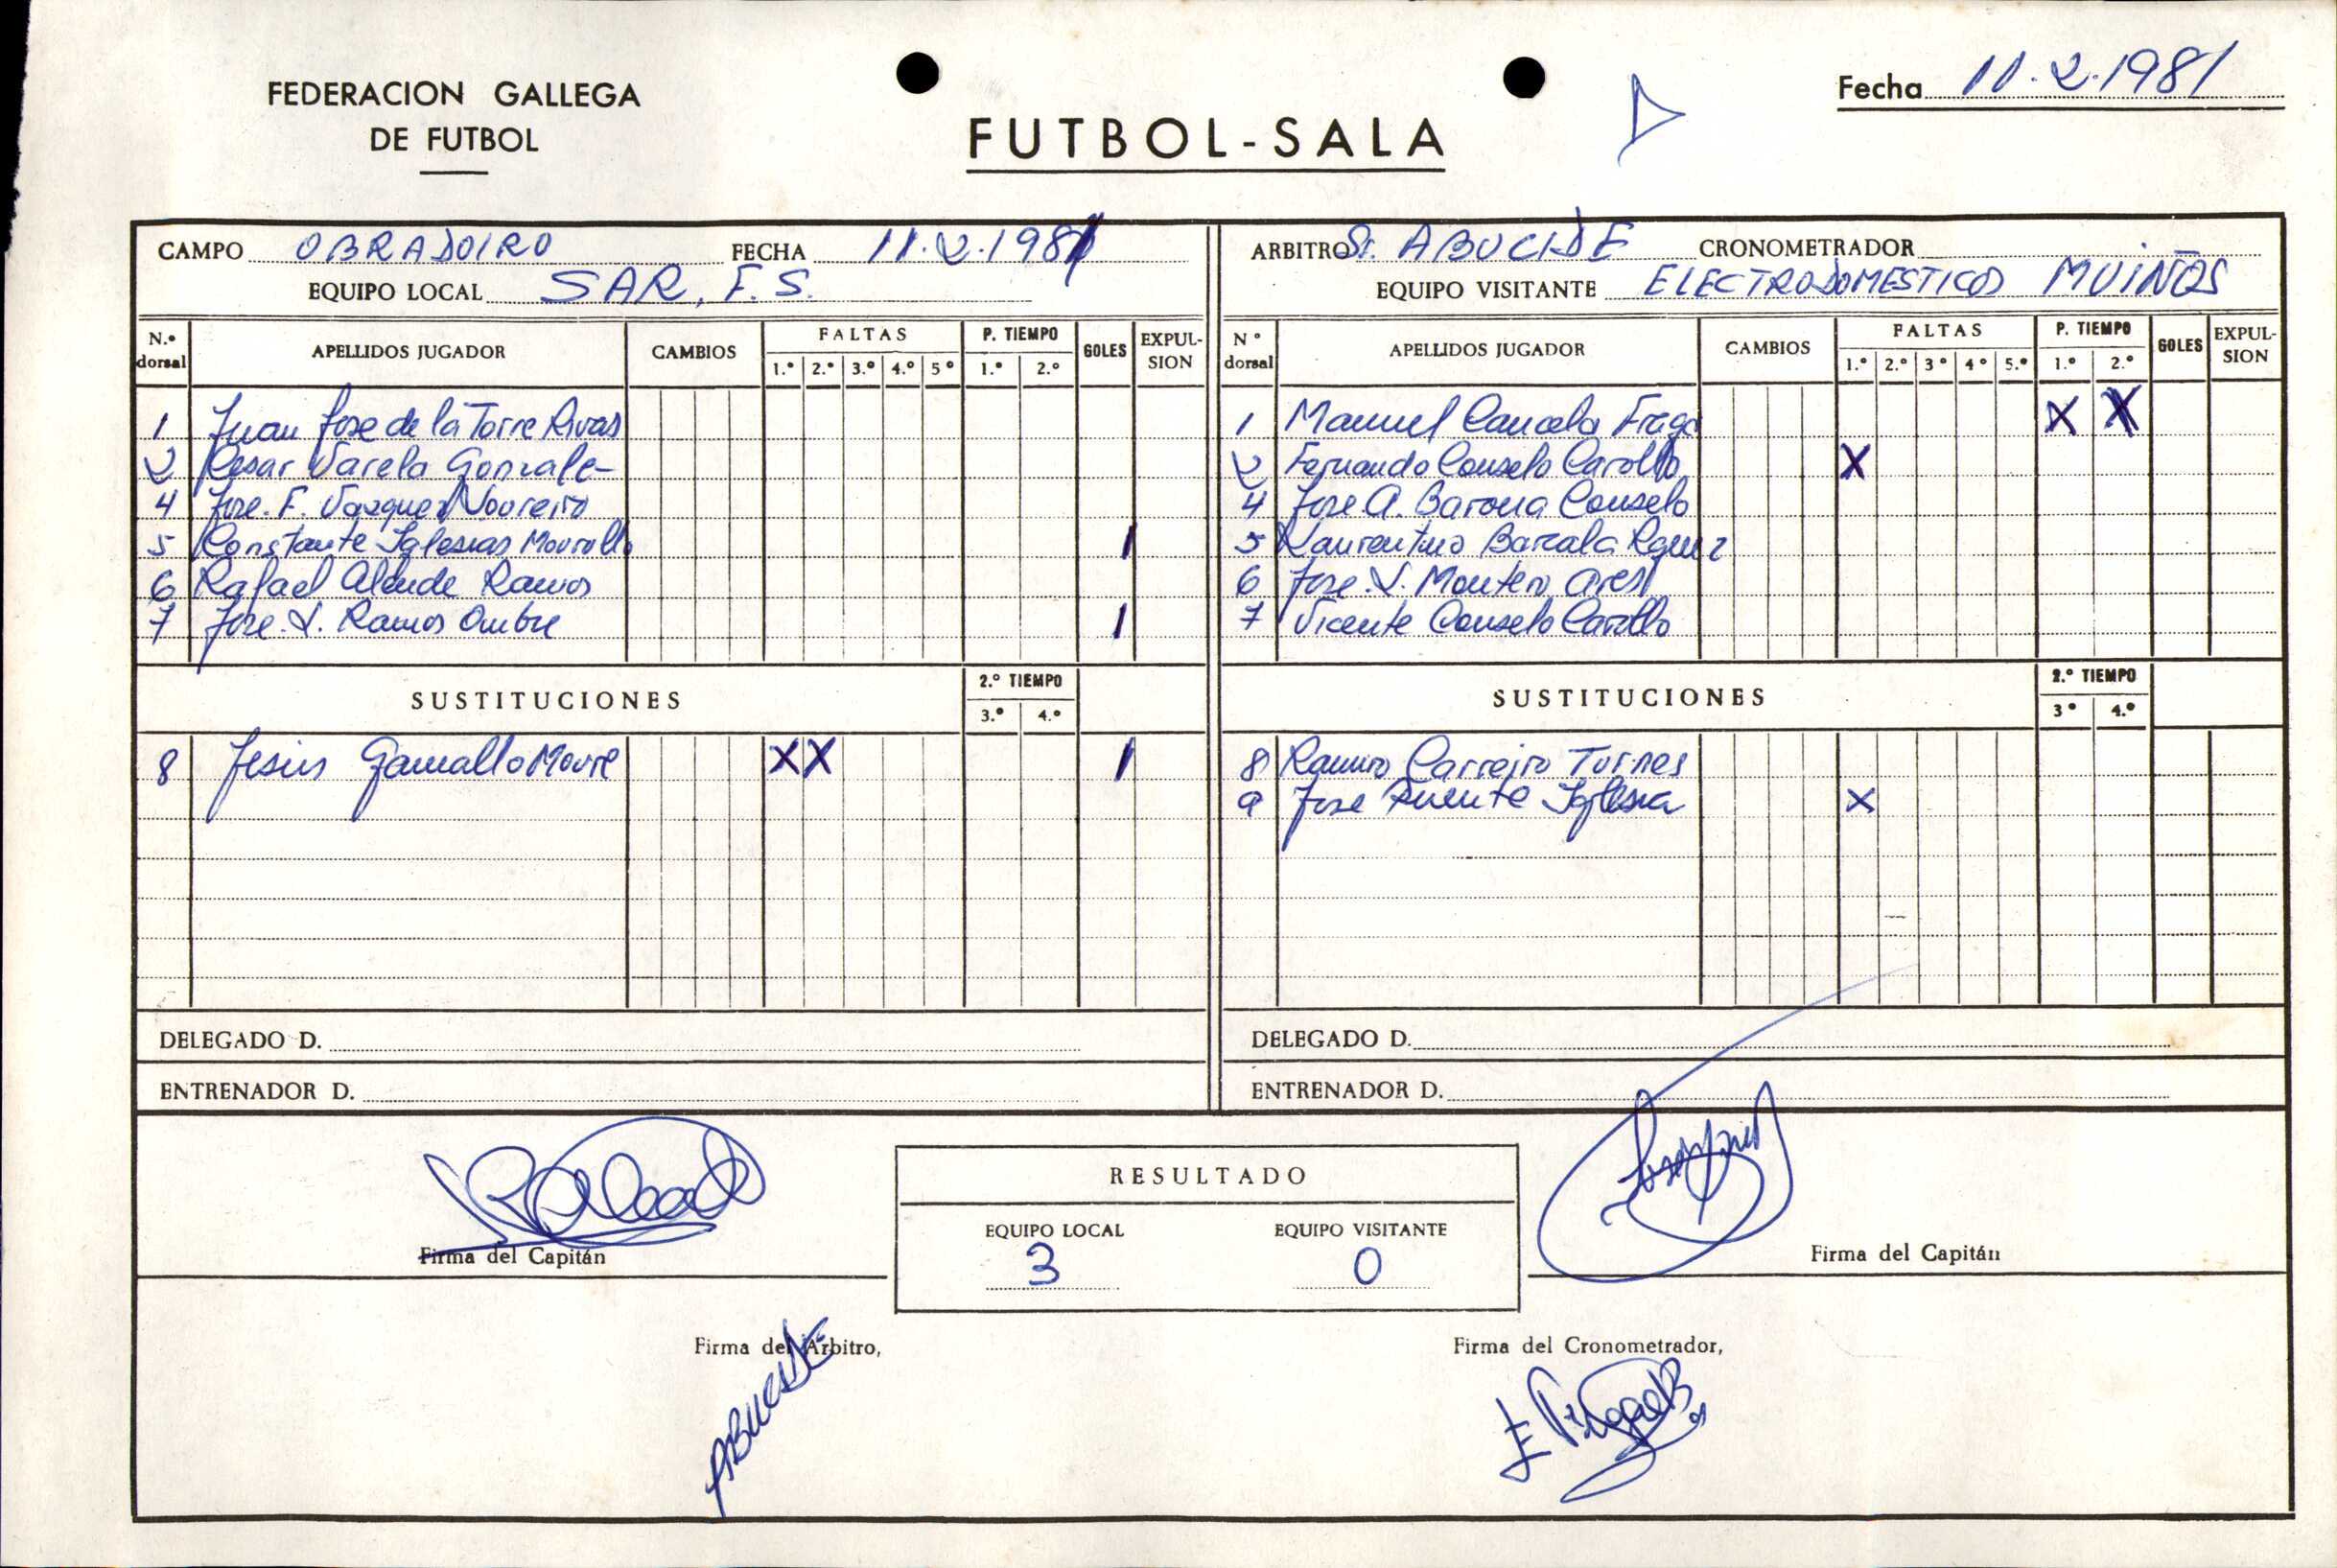 FEDERACION GALLEGA
DE FUTBOL
FUTBOL-SALA
Fecha 11.2.1981
CAMPO OBRADOIRO FECHA 11.2.1981
EQUIPO LOCAL SAR, F.S.
N.º dorsal APELLIDOS JUGADOR CAMBIOS FALTAS 1.º 2.º 3.º 4.º 5º P. TIEMPO 1.º 2.º GOLES EXPUL-SION
1 Juan Jose de la Torre Rivas
2 Cesar Varela Gonzale
4 Jose. F. Vazquez Noureiro
5 Constante Iglesias Mourollo 1
6 Rafael Alende Ramos
7 Jose. L. Ramos Ombre 1
SUSTITUCIONES 2.º TIEMPO 3.º 4.º
8 Jesus Gamallo Moure X X 1
DELEGADO D.
ENTRENADOR D.
ARBITRO Sr. ABUCIDE CRONOMETRADOR
EQUIPO VISITANTE ELECTRODOMESTICOS MUIÑOS
Nº dorsal APELLIDOS JUGADOR CAMBIOS FALTAS 1.º 2.º 3º 4º 5.º P. TIEMPO 1.º 2.º GOLES EXPUL-SION
1 Manuel Cancela Fraga X X
2 Fernando Conselo Carollo X
4 Jose A. Barona Conselo
5 Laurentino Barcala Rguez
6 Jose. L. Montero Ares
7 Vicente Conselo Carollo
SUSTITUCIONES 2.º TIEMPO 3º 4.º
8 Ramiro Carreiro Turnes
9 Jose Puente Iglesia X
DELEGADO D.
ENTRENADOR D.
Firma del Capitán
RESULTADO
EQUIPO LOCAL EQUIPO VISITANTE
3 0
Firma del Capitán
Firma del Arbitro,
ABUCIDE
Firma del Cronometrador,